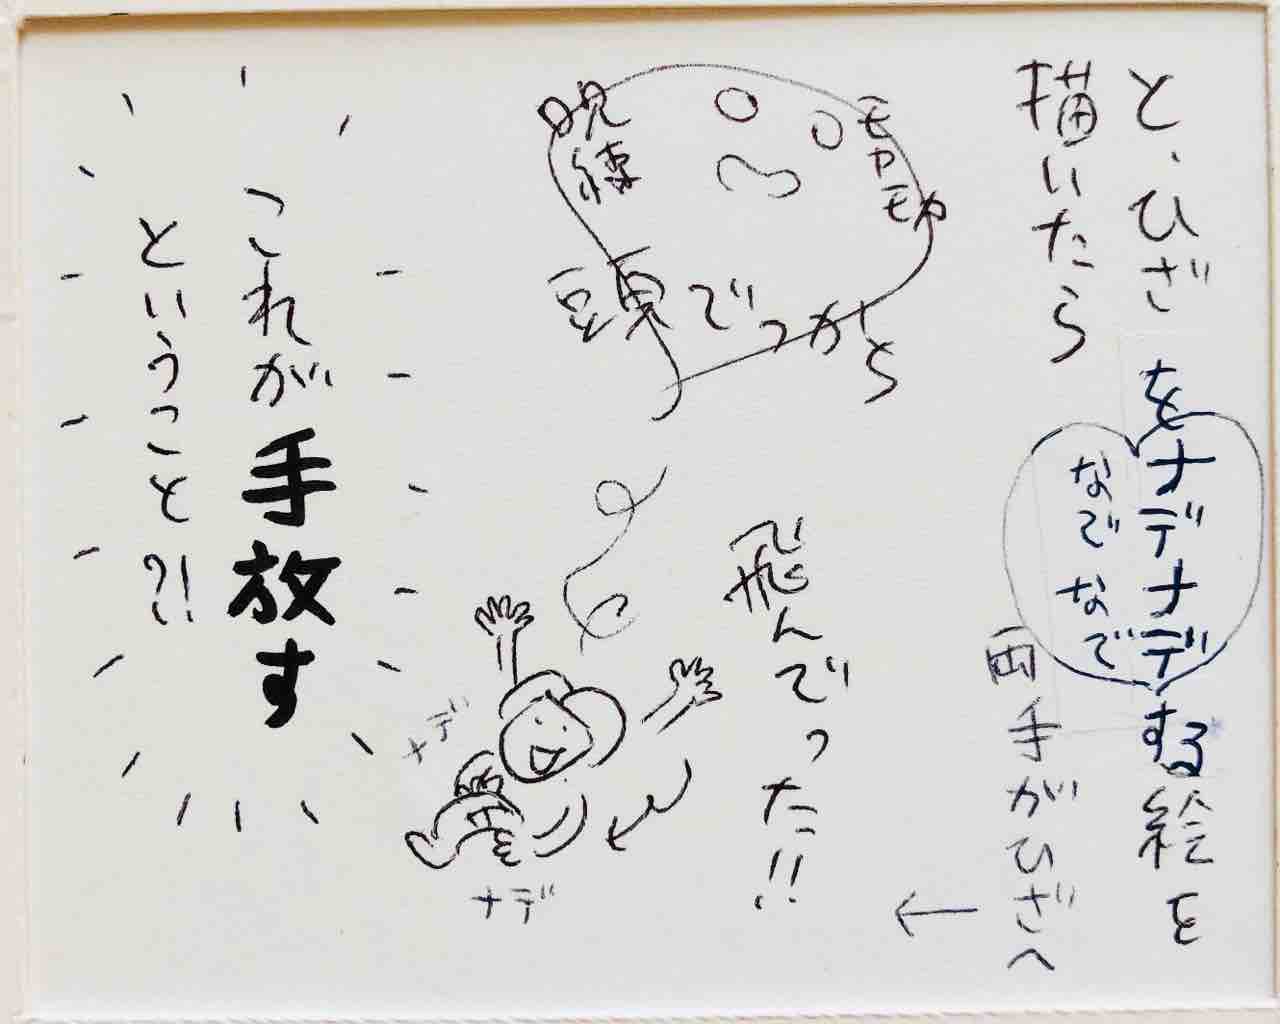 と、ひざをナデナデする絵を
なでなで
描いたら
両手がひざへ
←
モヤモヤ
頭でっかち
飛んでった!!
ナデ
ナデ
これが手放す
ということ?!